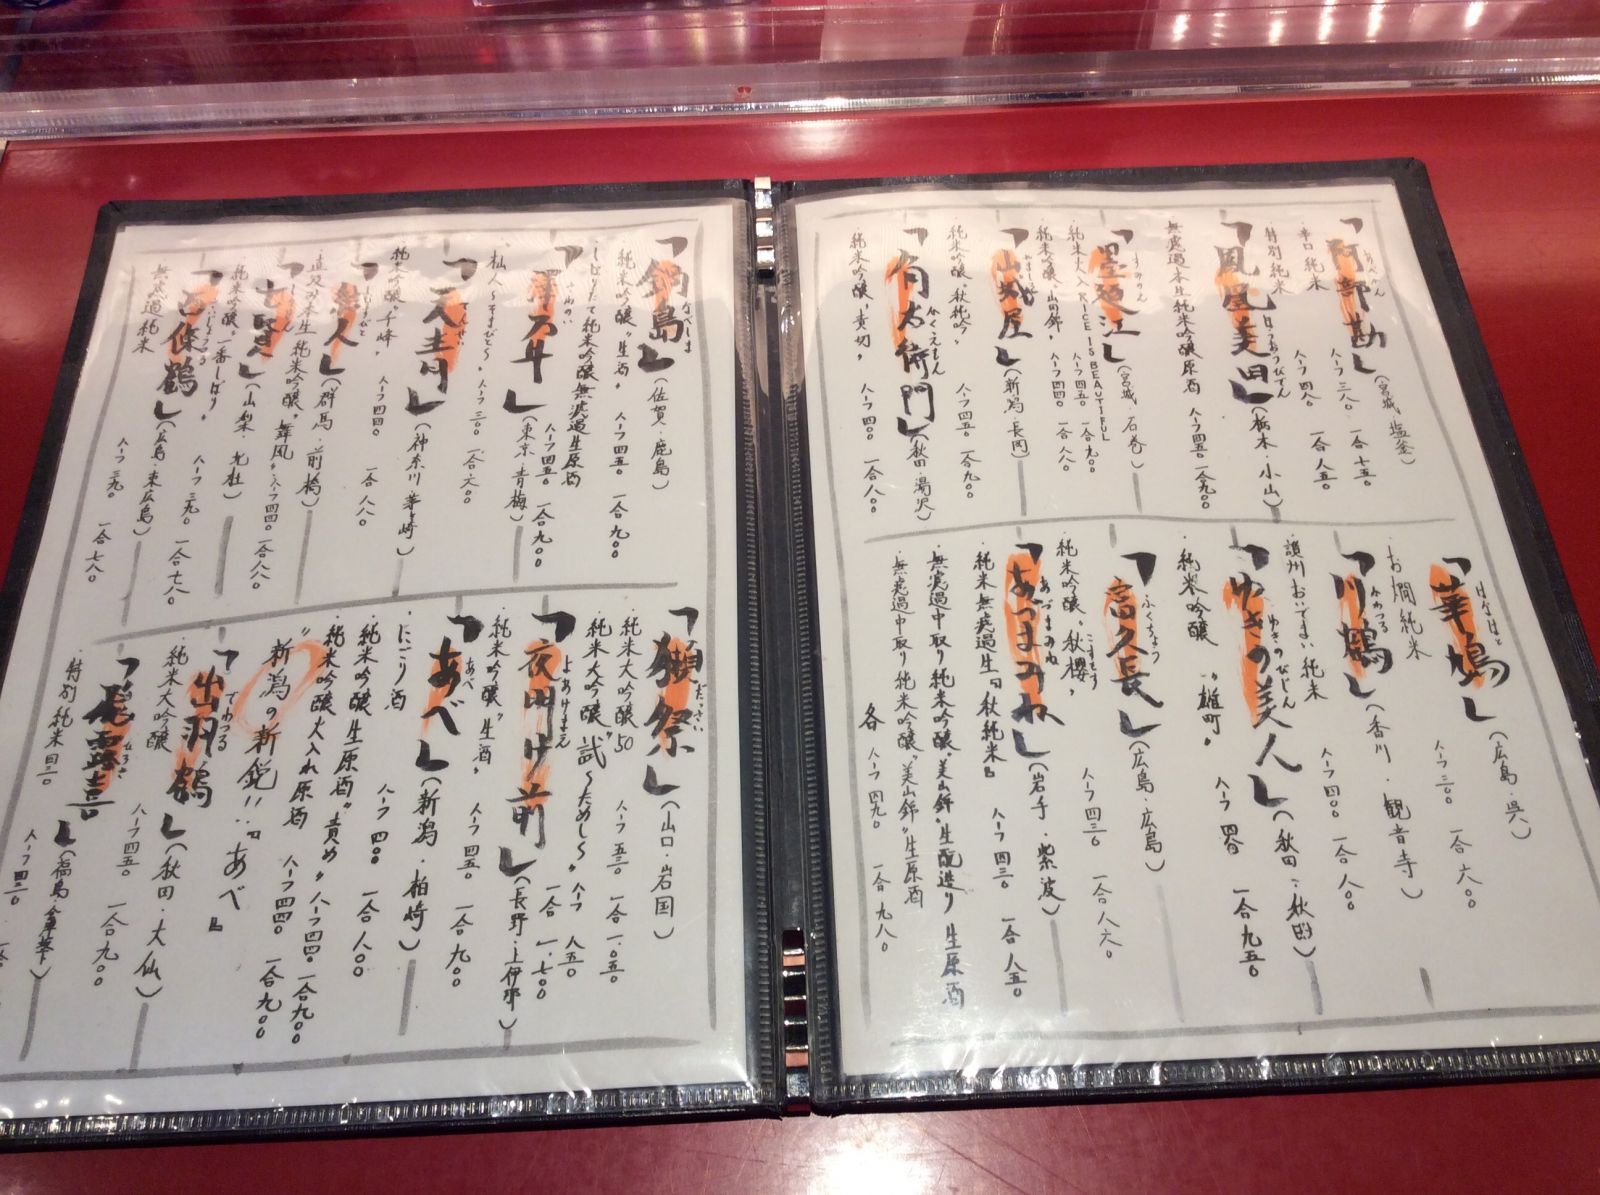 「阿部勘」(宮城・塩釜)
あべかん
辛口 純米 ハーフ三八〇 一合七五〇
特別純米 ハーフ四八〇 一合八五〇
「鳳凰美田」(栃木・小山)
ほうおうびでん
無濾過本生純米吟醸原酒 ハーフ四五〇 一合九〇〇
「墨廼江」(宮城・石巻)
すみのえ
純米大入 RICE IS BEAUTIFUL ハーフ四五〇 一合九〇〇
純米吟醸"山田錦" ハーフ四四〇 一合八八〇
「山城屋」(新潟・長岡)
純米吟醸"秋純吟" ハーフ四五〇 一合九〇〇
「角右衛門」(秋田・湯沢)
かくえもん
純米吟醸"責切" ハーフ四〇〇 一合八〇〇
「華鳩」(広島・呉)
はなはと
お燗純米 ハーフ三〇〇 一合六〇〇
「川鶴」(香川・観音寺)
かわつる
讃州おいでまい純米 ハーフ四〇〇 一合八〇〇
「ゆきの美人」(秋田・秋田)
ゆきのびじん
純米吟醸 "雄町" 一合九五〇
「富久長」(広島・広島)
ふくちょう
純米吟醸"秋櫻" ハーフ四三〇 一合八六〇
こすもす
「あづまみね」(岩手・紫波)
あづまみね
純米無濾過生『秋純米』 ハーフ四三〇 一合八五〇
・無濾過中取り純米吟醸"美山錦"生酛造り 生原酒
・無濾過中取り純米吟醸"美山錦"生原酒
各 ハーフ四九〇 一合九八〇
「鍋島」(佐賀・鹿島)
なべしま
純米吟醸"生酒" ハーフ四五〇 一合九〇〇
しぼりたて純米吟醸無濾過生原酒 ハーフ四五〇 一合九〇〇
「澤乃井」(東京・青梅)
さわのい
杣人〜そまびと〜 ハーフ三〇〇 一合六〇〇
「天青」(神奈川・茅ヶ崎)
てんせい
純米吟醸"千峰" ハーフ四四〇 一合八八〇
(群馬・前橋)
直汲み本生 純米吟醸"舞風" ハーフ四四〇 一合八八〇
純米吟醸"一番しぼり" ハーフ三九〇 一合七八〇
鶴」(広島・東広島)
無濾過純米 ハーフ三九〇 一合七八〇
「獺祭」(山口・岩国)
だっさい
・純米大吟醸50 ハーフ五三〇 一合一・〇五〇
・純米大吟醸"試〜ためし〜" ハーフ八五〇 一合一,七〇〇
「夜明け前」(長野・上伊那)
よあけまえ
・純米吟醸"生酒" ハーフ四五〇 一合九〇〇
「あべ」(新潟・柏崎)
あべ
・にごり酒 ハーフ四〇〇 一合八〇〇
・純米吟醸生原酒"責め" ハーフ四四〇 一合九〇〇
・純米吟醸火入れ原酒 ハーフ四四〇 一合九〇〇
"新潟の新鋭!!・『あべ』
「出羽鶴」(秋田・大仙)
でわつる
・純米大吟醸 ハーフ四五〇 一合九〇〇
「飛露喜」(福島・会津)
ひろき
・特別純米 ハーフ四三〇